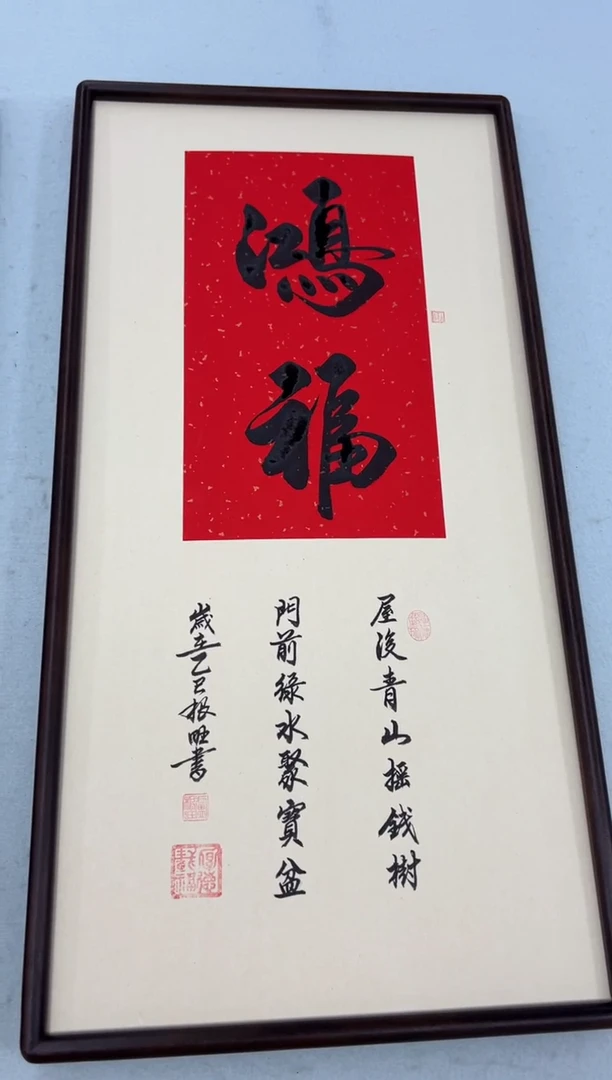 鴻福
屋後青山搖錢樹
門前綠水聚寶盆
歲在乙巳根旺書